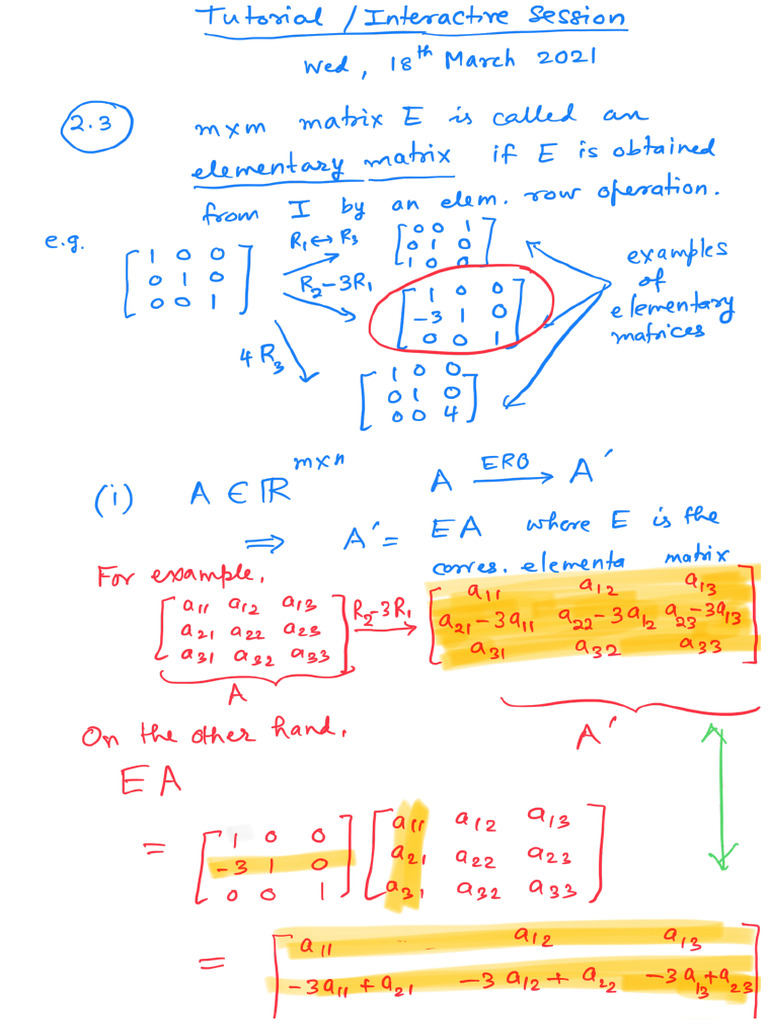 Tutorial / Interactive Session
Wed, 18th March 2021
2.3 m×m matrix E is called an
elementary matrix if E is obtained
from I by an elem. row operation.
e.g.
[1 0 0
0 1 0
0 0 1]
R1↔R3
[0 0 1
0 1 0
1 0 0]
R2−3R1
[1 0 0
−3 1 0
0 0 1]
4R3
[1 0 0
0 1 0
0 0 4]
examples
of
elementary
matrices
(i) A ∈ ℝ^{m×n} A —ERO→ A′
⇒ A′ = EA where E is the
corres. elementa matrix
For example,
[a11 a12 a13
a21 a22 a23
a31 a32 a33]
A
R2−3R1 →
[a11 a12 a13
a21−3a11 a22−3a12 a23−3a13
a31 a32 a33]
A′
On the other hand,
EA
= [1 0 0
−3 1 0
0 0 1]
[a11 a12 a13
a21 a22 a23
a31 a32 a33]
= [a11 a12 a13
−3a11+a21 −3a12+a22 −3a13+a23]